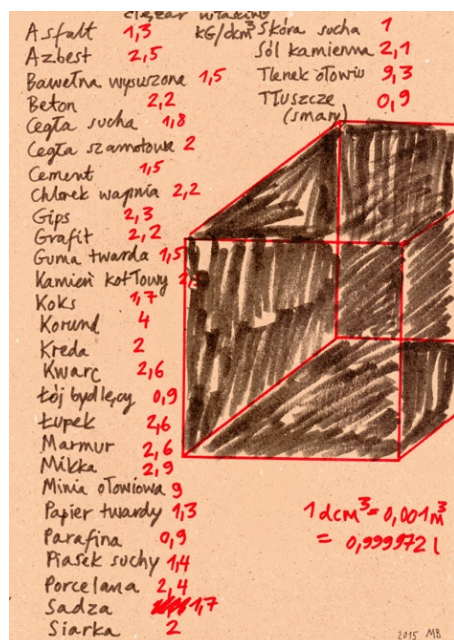 ciężar własciwy
kG/dcm³
Asfalt 1,3
Azbest 2,5
Bawełna wysuszona 1,5
Beton 2,2
Cegła sucha 1,8
Cegła szamotowa 2
Cement 1,5
Chlorek wapnia 2,2
Gips 2,3
Grafit 2,2
Guma twarda 1,5
Kamień kotłowy
Koks 1,7
Korund 4
Kreda 2
Kwarc 2,6
Łój bydlęcy 0,9
Łupek 2,6
Marmur 2,6
Mikka 2,9
Minia ołowiowa 9
Papier twardy 1,3
Parafina 0,9
Piasek suchy 1,4
Porcelana 2,4
Sadza 1,7
Siarka 2
Skóra sucha 1
Sól kamienna 2,1
Tlenek ołowiu 9,3
Tłuszcze 0,9
(smary)
1 dcm³ = 0,001 m³
= 0,999972 l
2015 MB